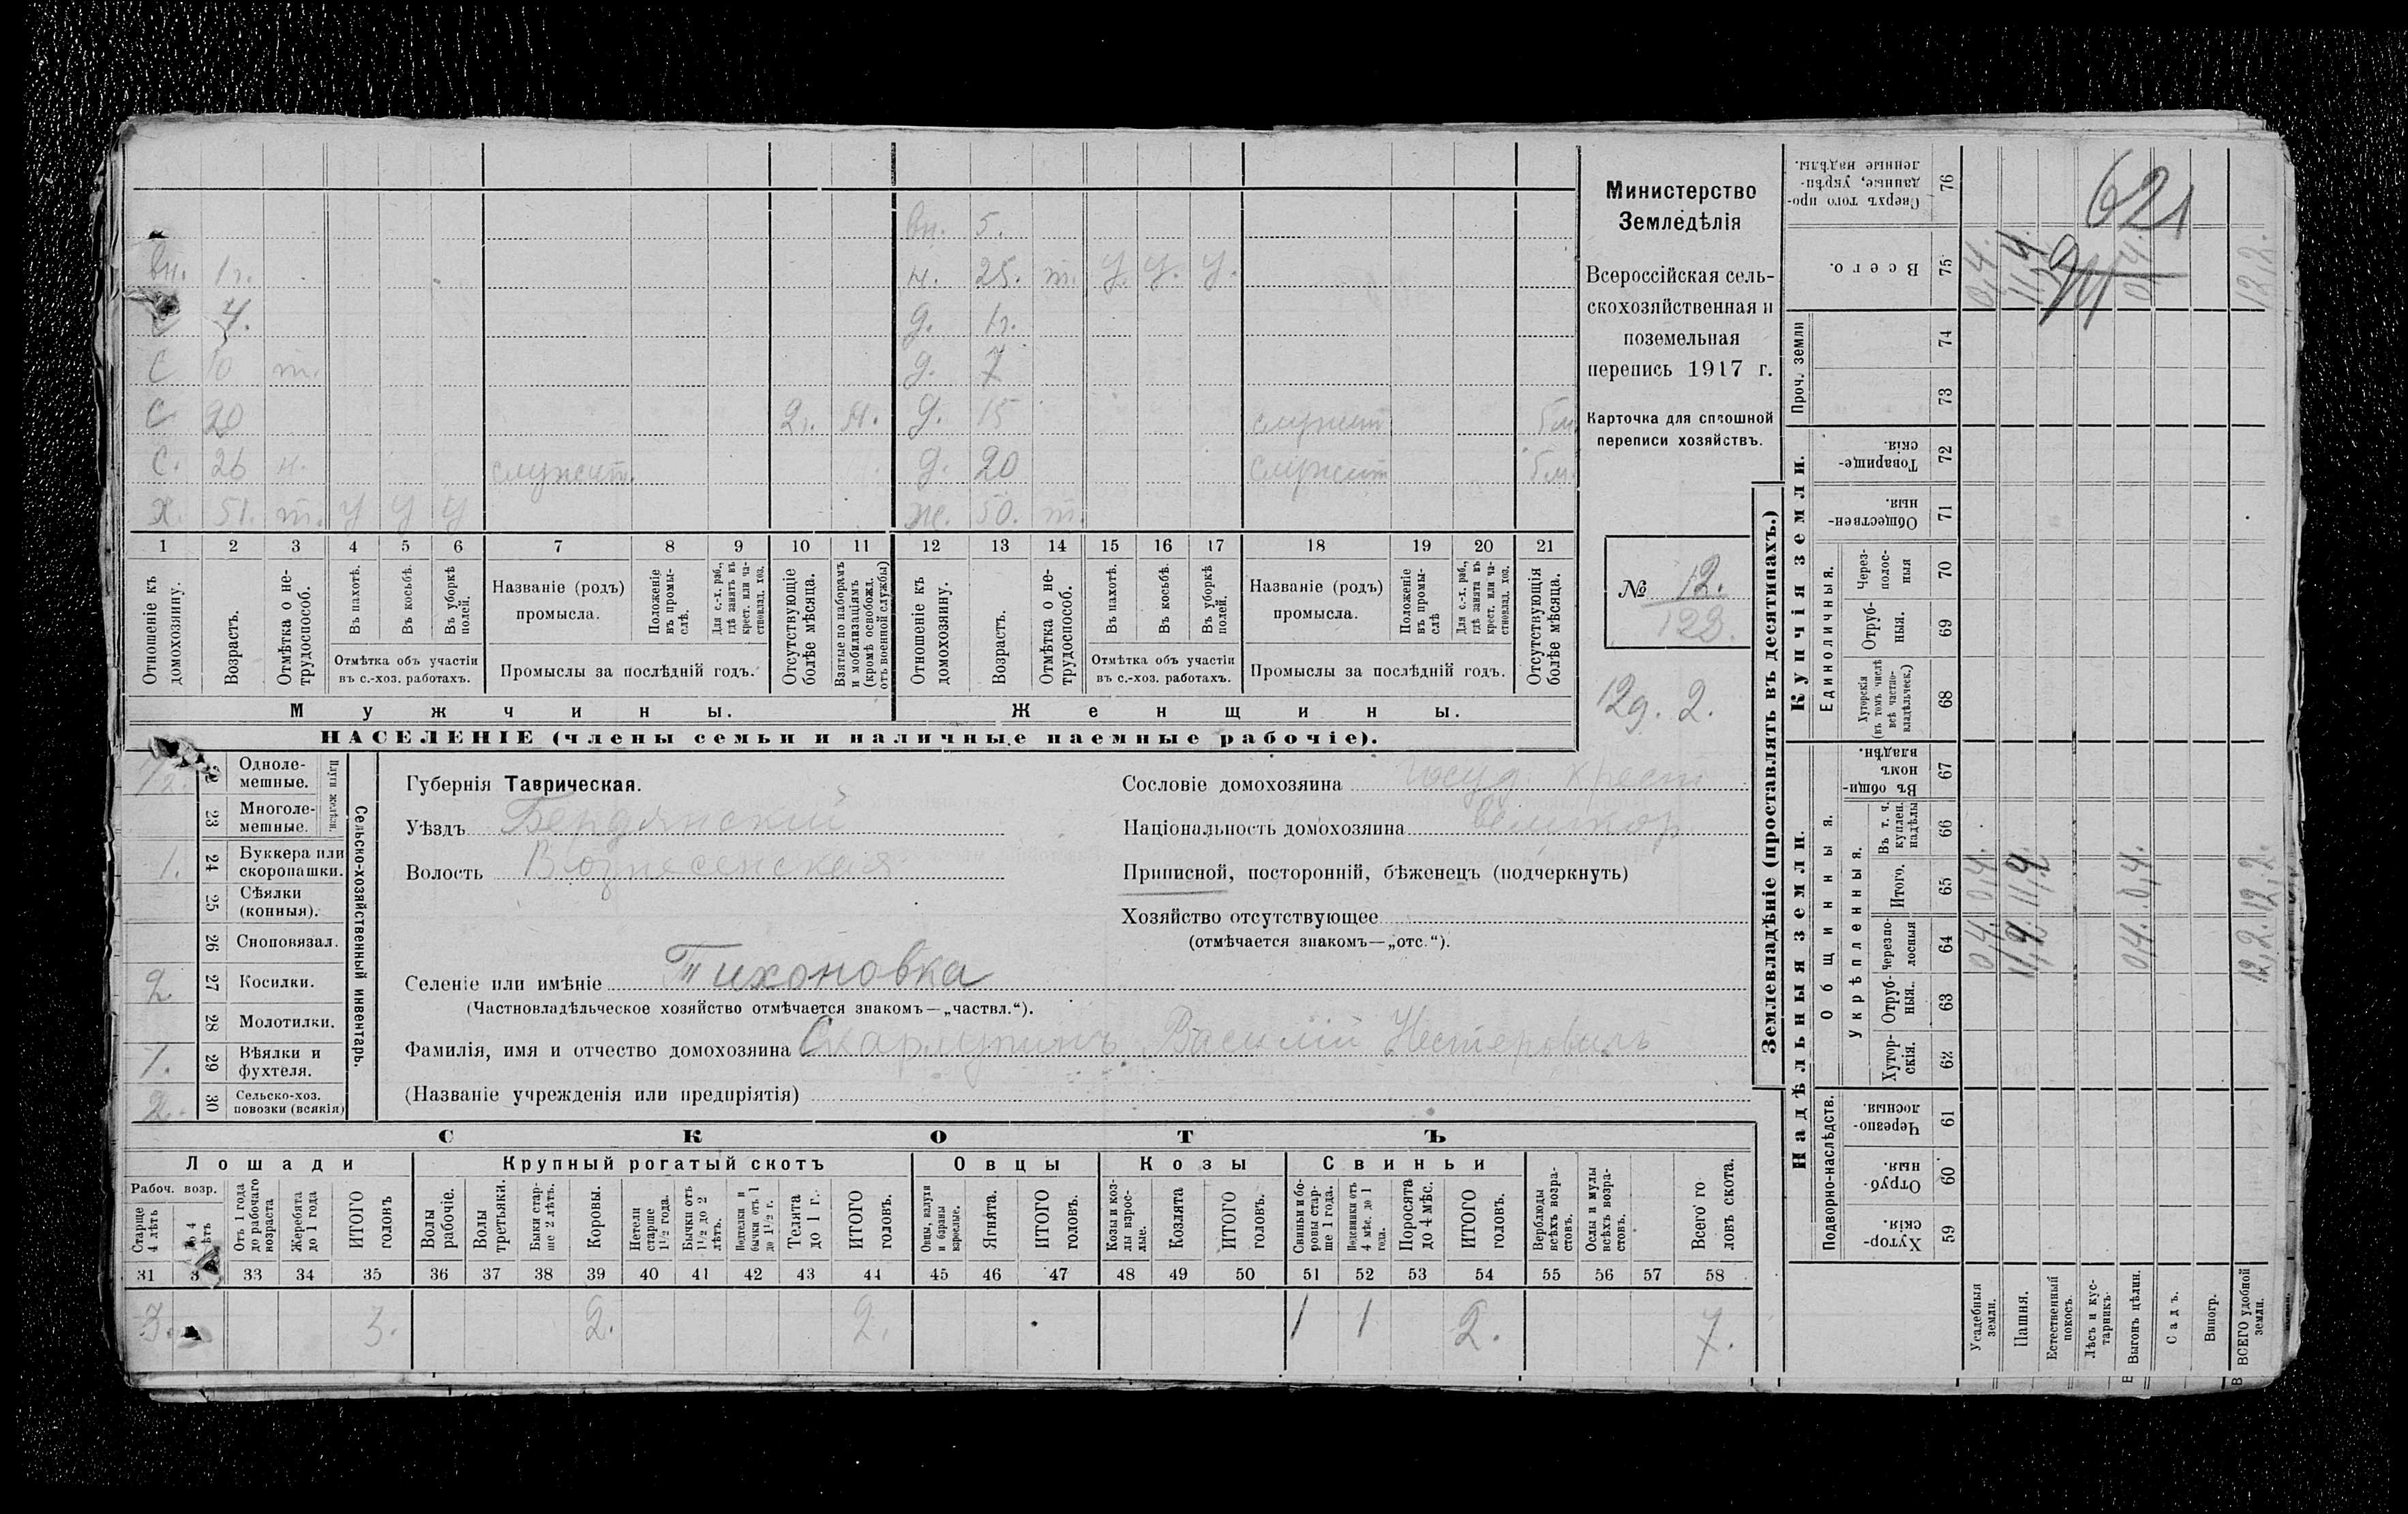 вн. 5.
вн. 1г. н. 25. т. У. У. У.
с 4. д. 1г.
С 10 т. д. 7
С 20 2г. Н. д. 15 служит 6м
С. 26 н. служит. д. 20 служит 6м.
Х. 51. т. У У У ж. 50. т.
1 2 3 4 5 6 7 8 9 10 11 12 13 14 15 16 17 18 19 20 21
Отношеніе къ домохозяину.
Возрастъ.
Отмѣтка о не-трудоспособ.
Въ пахотѣ.
Въ косьбѣ.
Въ уборкѣ полей.
Отмѣтка объ участіи
въ с.-хоз. работахъ.
Названіе (родъ)
промысла.
Положеніе въ промы-слѣ.
Для с.-х. раб., гдѣ занятъ въ крест. или ча-стновлад. хоз.
Промыслы за послѣдній годъ.
Отсутствующіе болѣе мѣсяца.
Взятые по наборамъ и мобилизаціямъ (кромѣ освобожд. отъ военной службы)
Отношеніе къ домохозяину.
Возрастъ.
Отмѣтка о не-трудоспособ.
Въ пахотѣ.
Въ косьбѣ.
Въ уборкѣ полей.
Отмѣтка объ участіи
въ с.-хоз. работахъ.
Названіе (родъ)
промысла.
Положеніе въ промы-слѣ
Для с.-х. раб., гдѣ занятъ въ крест. или ча-стновлад. хоз.
Промыслы за послѣдній годъ.
Отсутствующія болѣе мѣсяца.
Мужчины. Женщины.
НАСЕЛЕНІЕ (члены семьи и наличные наемные рабочіе).
Министерство
Земледѣлія
Всероссійская сель-
скохозяйственная и
поземельная
перепись 1917 г.
Карточка для сплошной
переписи хозяйствъ.
№ 12.
123.
12д. 2.
Сельско-хозяйственный инвентарь.
Плуги желѣзн.
1/2. Одноле-мешные.
23 Многоле-мешные.
1. 24 Буккера или скоропашки.
25 Сѣялки (конныя).
26 Сноповязал.
2 27 Косилки.
28 Молотилки.
1. 29 Вѣялки и фухтеля.
2. 30 Сельско-хоз. повозки (всякія)
Губернія Таврическая.
Уѣздъ Бердянскій
Волость Вознесенская
Селеніе или имѣніе Тихоновка
(Частновладѣльческое хозяйство отмѣчается знакомъ—„частвл.“).
Фамилія, имя и отчество домохозяина Скарлупинъ Василій Нестеровичъ
(Названіе учрежденія или предпріятія)
Сословіе домохозяина госуд. крест
Національность домохозяина великор
Приписной, посторонній, бѣженецъ (подчеркнуть)
Хозяйство отсутствующее
(отмѣчается знакомъ—„отс.“).
СКОТЪ
Лошади Крупный рогатый скотъ Овцы Козы Свиньи
Рабоч. возр.
Старше 4 лѣтъ
до 4 лѣтъ
Отъ 1 года до рабочаго возраста
Жеребята до 1 года
ИТОГО головъ
Волы рабочіе.
Волы третьяки.
Быки стар-ше 2 лѣтъ.
Коровы.
Нетели старше 1 1/2 года.
Бычки отъ 1 1/2 до 2 лѣтъ.
Подтелки и бычки отъ 1 до 1 1/2 г.
Телята до 1 г.
ИТОГО головъ.
Овцы, валухи и бараны взрослые.
Ягнята.
ИТОГО головъ.
Козы и коз-лы взрос-лые.
Козлята
ИТОГО головъ.
Свиньи и бо-ровы стар-ше 1 года.
Подсвинки отъ 4 мѣс. до 1 года.
Поросята до 4 мѣс.
ИТОГО головъ.
Верблюды всѣхъ возра-стовъ.
Ослы и мулы всѣхъ возра-стовъ.
Всего го-ловъ скота.
31 33 34 35 36 37 38 39 40 41 42 43 44 45 46 47 48 49 50 51 52 53 54 55 56 57 58
3. 3. 2. 2. 1 1 2. 7.
Землевладѣніе (проставлять въ десятинахъ.)
Надѣльныя земли. Купчія земли. Проч. земли
Подворно-наслѣдств.
Общинныя.
Укрѣпленныя.
Единоличныя.
Хутор-скія. 59
Отруб-ныя. 60
Черезпо-лосныя. 61
Хутор-скія. 62
Отруб-ныя. 63
Черезпо-лосныя 64
Итого. 65
Въ т. ч. куплен. надѣлы 66
Въ общин-номъ владѣн. 67
Хуторскія (въ томъ числѣ всѣ частно-владѣльческ.) 68
Отруб-ныя. 69
Через-полос-ныя 70
Обществен-ныя. 71
Товарище-скія. 72
73
74
Всего. 75
Сверхъ того про-данные, укрѣп-ленные надѣлы. 76
Усадебныя земли. 0,4 0,4. 0,4.
Пашня. 11,4 11,4 11,4.
Естественный покосъ.
Лѣсъ и кус-тарникъ.
Выгонъ цѣлин. 0,4. 0,4. 0,4.
Садъ.
Виногр.
ВСЕГО удобной земли. 12,2. 12,2. 12,2.
621